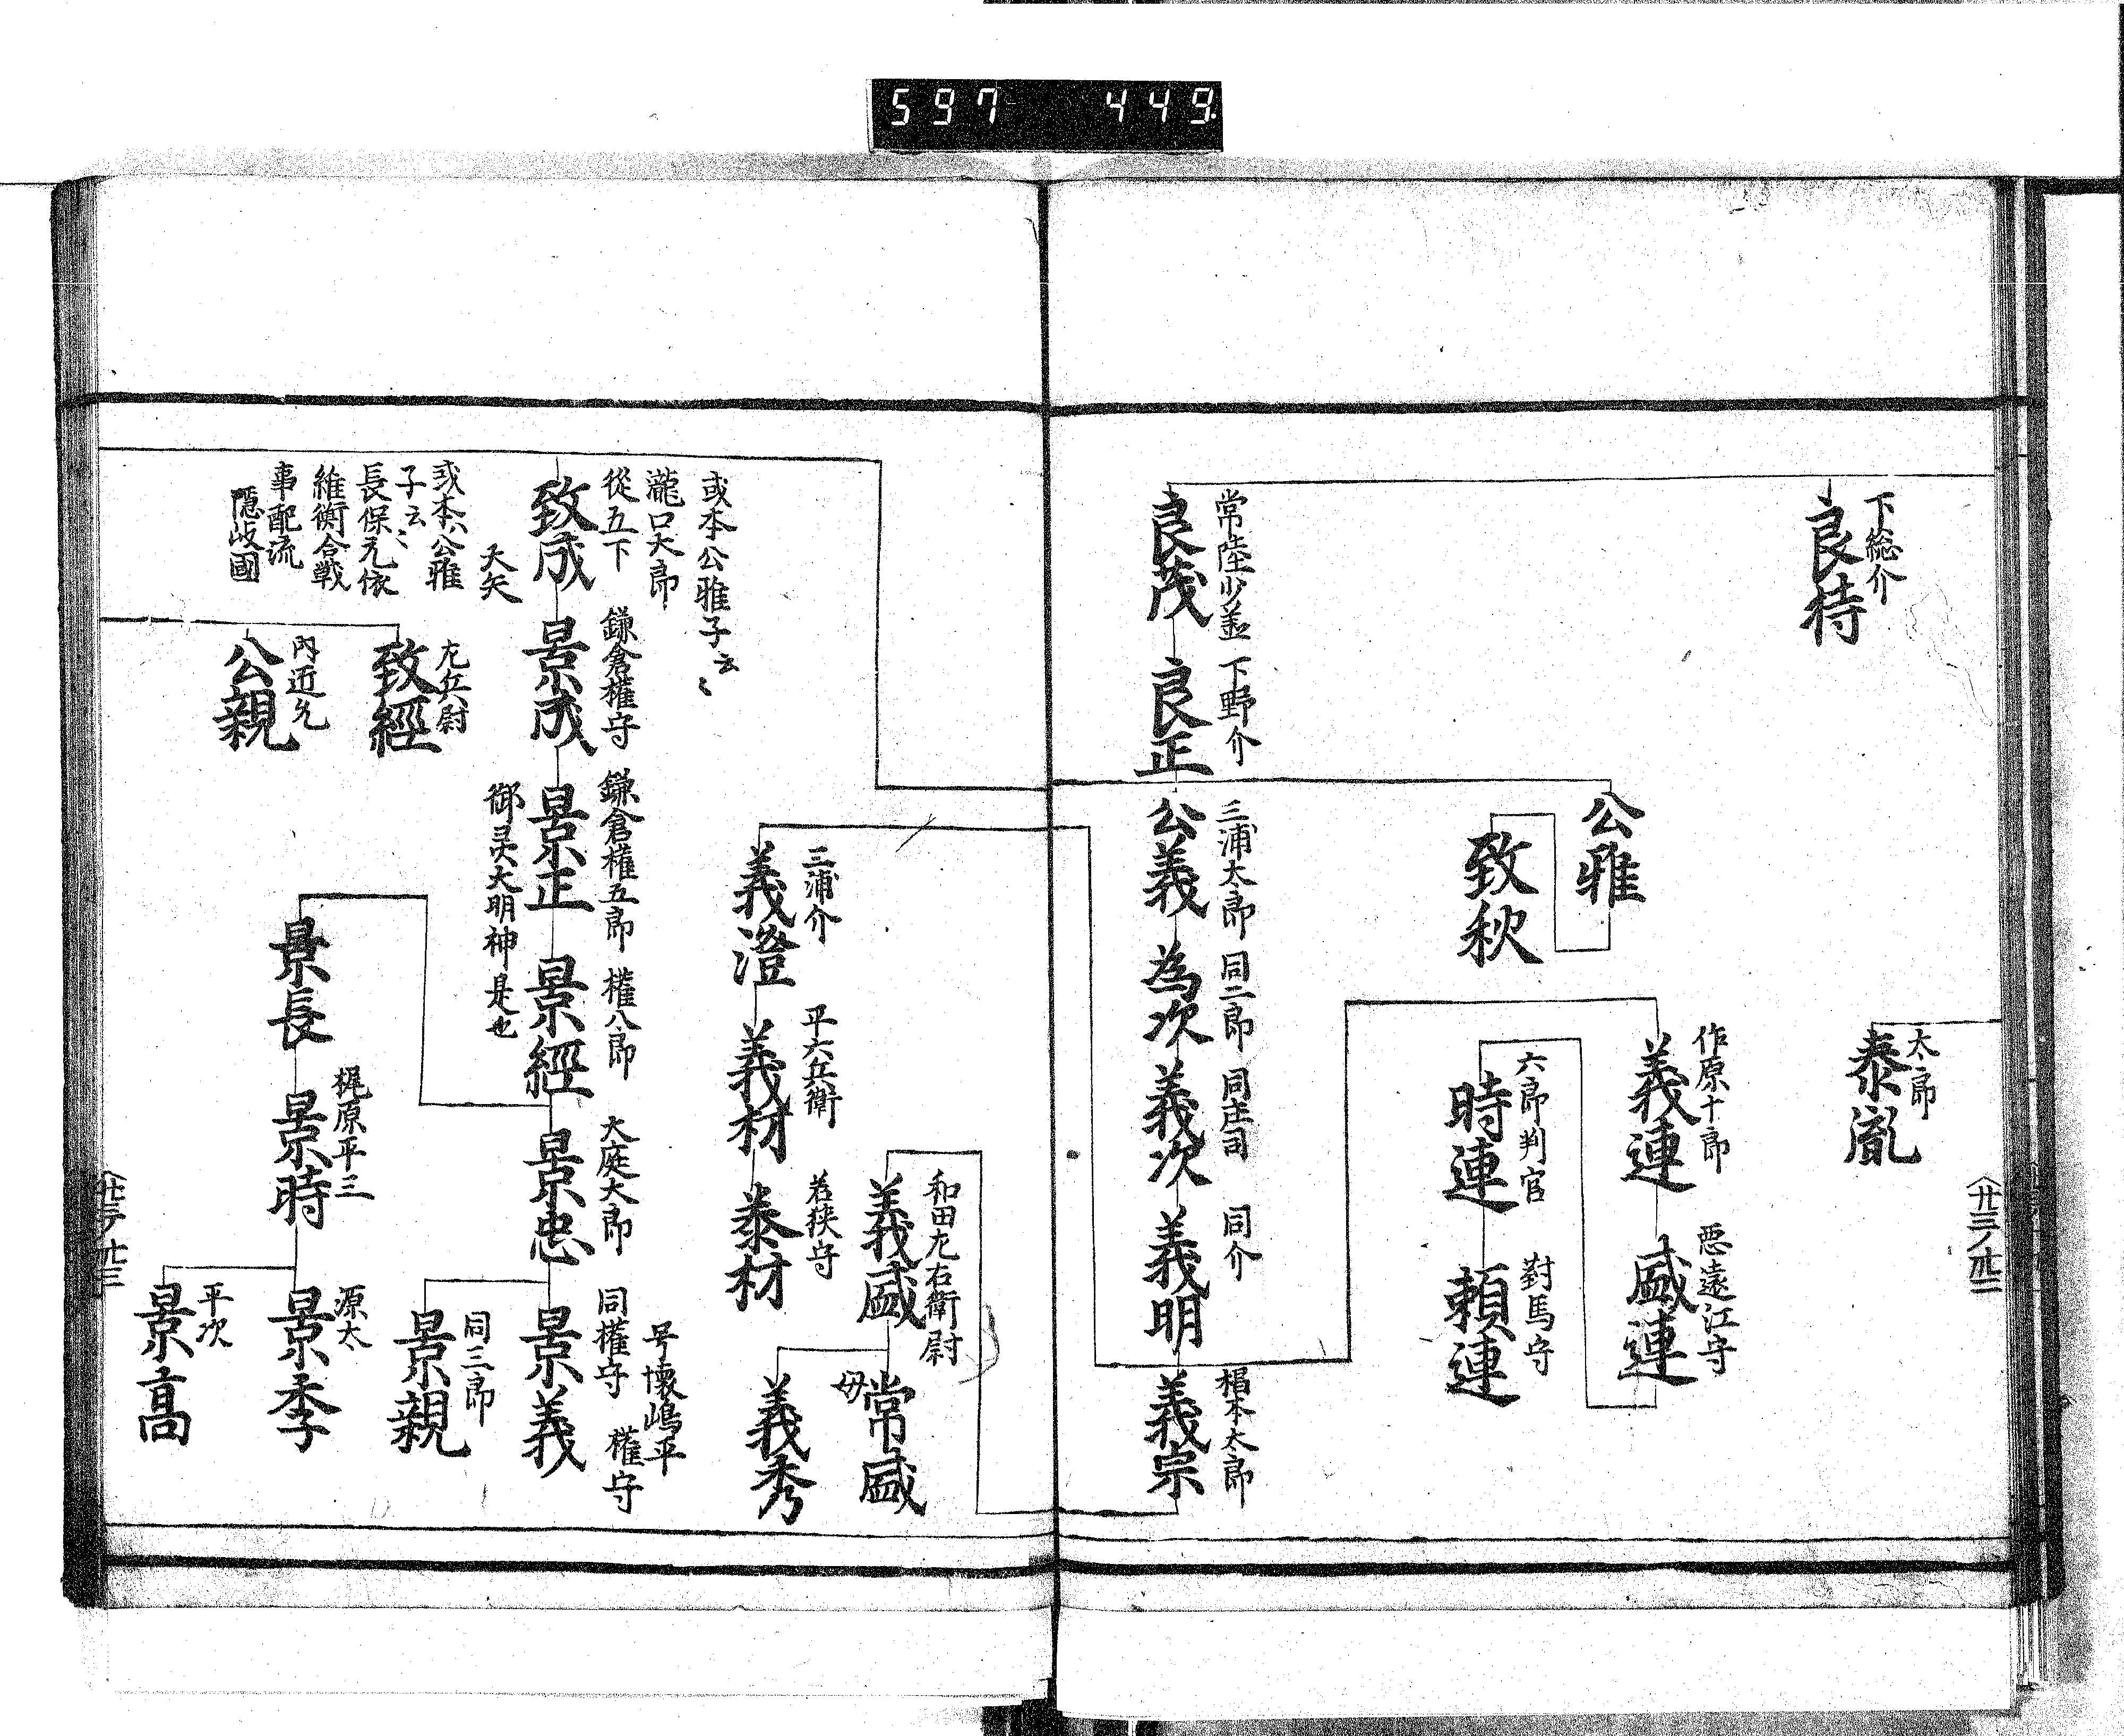 597 449
下総介
良待
太郎
泰胤
公雅
致秋
作原十郎
義連
悪遠江守
盛連
六郎判官
時連
對馬守
頼連
常陸少盖
良茂
下野介
良正
三浦太郎
公義
同二郎
為次
同庄司
義次
同介
義明
椙本太郎
義宗
和田左右衛尉
義盛
常盛
義秀
三浦介
義澄
平六兵衛
義材
若狭守
泰材
或本公雅子云々
瀧口大郎
従五下
致成
鎌倉権守
景成
鎌倉権五郎
景正
御灵大明神是也
権八郎
景經
大庭大郎
景忠
号懐嶋平
権守
同権守
景義
同三郎
景親
景長
梶原平三
景時
源太
景季
平次
景高
大矢
或本公雅
子云々
長保元依
維衡合戦
事配流
隠岐國
左兵尉
致經
内匠允
公親